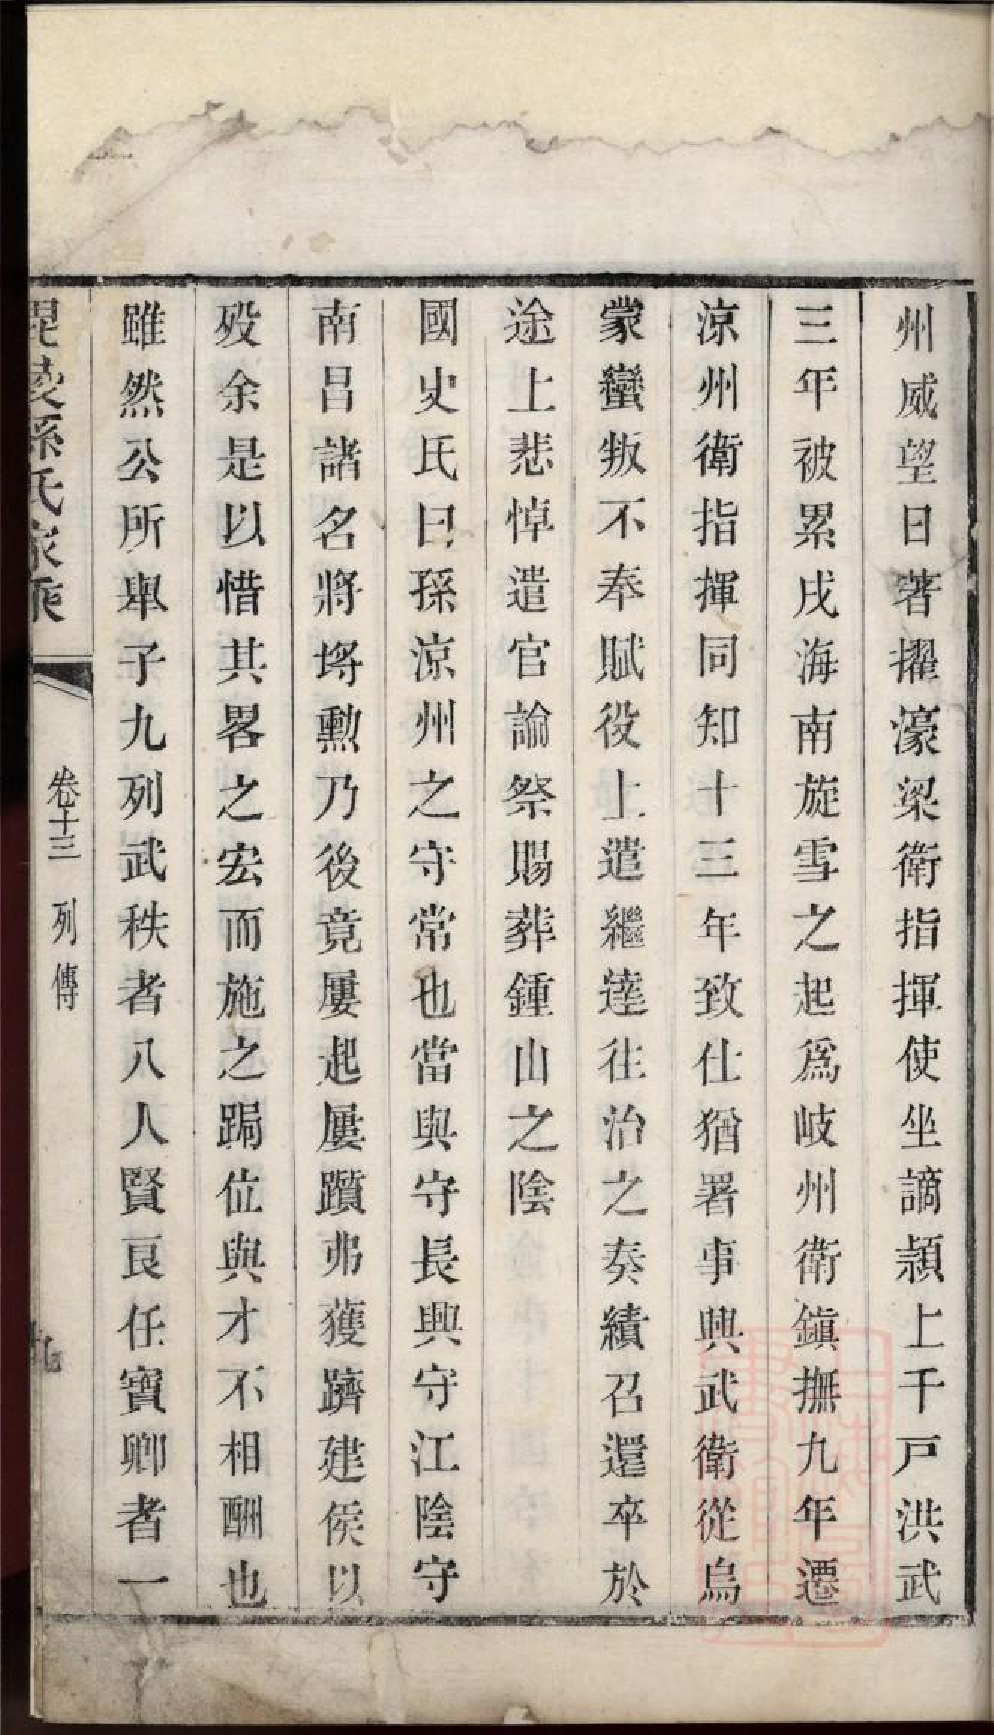 州威望日著擢濠梁衛指揮使坐謫潁上千戸洪武
三年被累戍海南旋雪之起爲岐州衛鎭撫九年遷
涼州衛指揮同知十三年致仕猶署事興武衛從烏
蒙蠻叛不奉賦役上遣繼達往治之奏績召還卒於
途上悲悼遣官諭祭賜葬鍾山之陰
國史氏曰孫涼州之守常也當與守長興守江陰守
南昌諸名將埒勲乃後竟屢起屢躓弗獲躋建侯以
歿余是以惜其畧之宏而施之跼位與才不相酬也
雖然公所舉子九列武秩者八人賢良任寶卿者一
毘陵孫氏家乘
卷十三 列傳
九